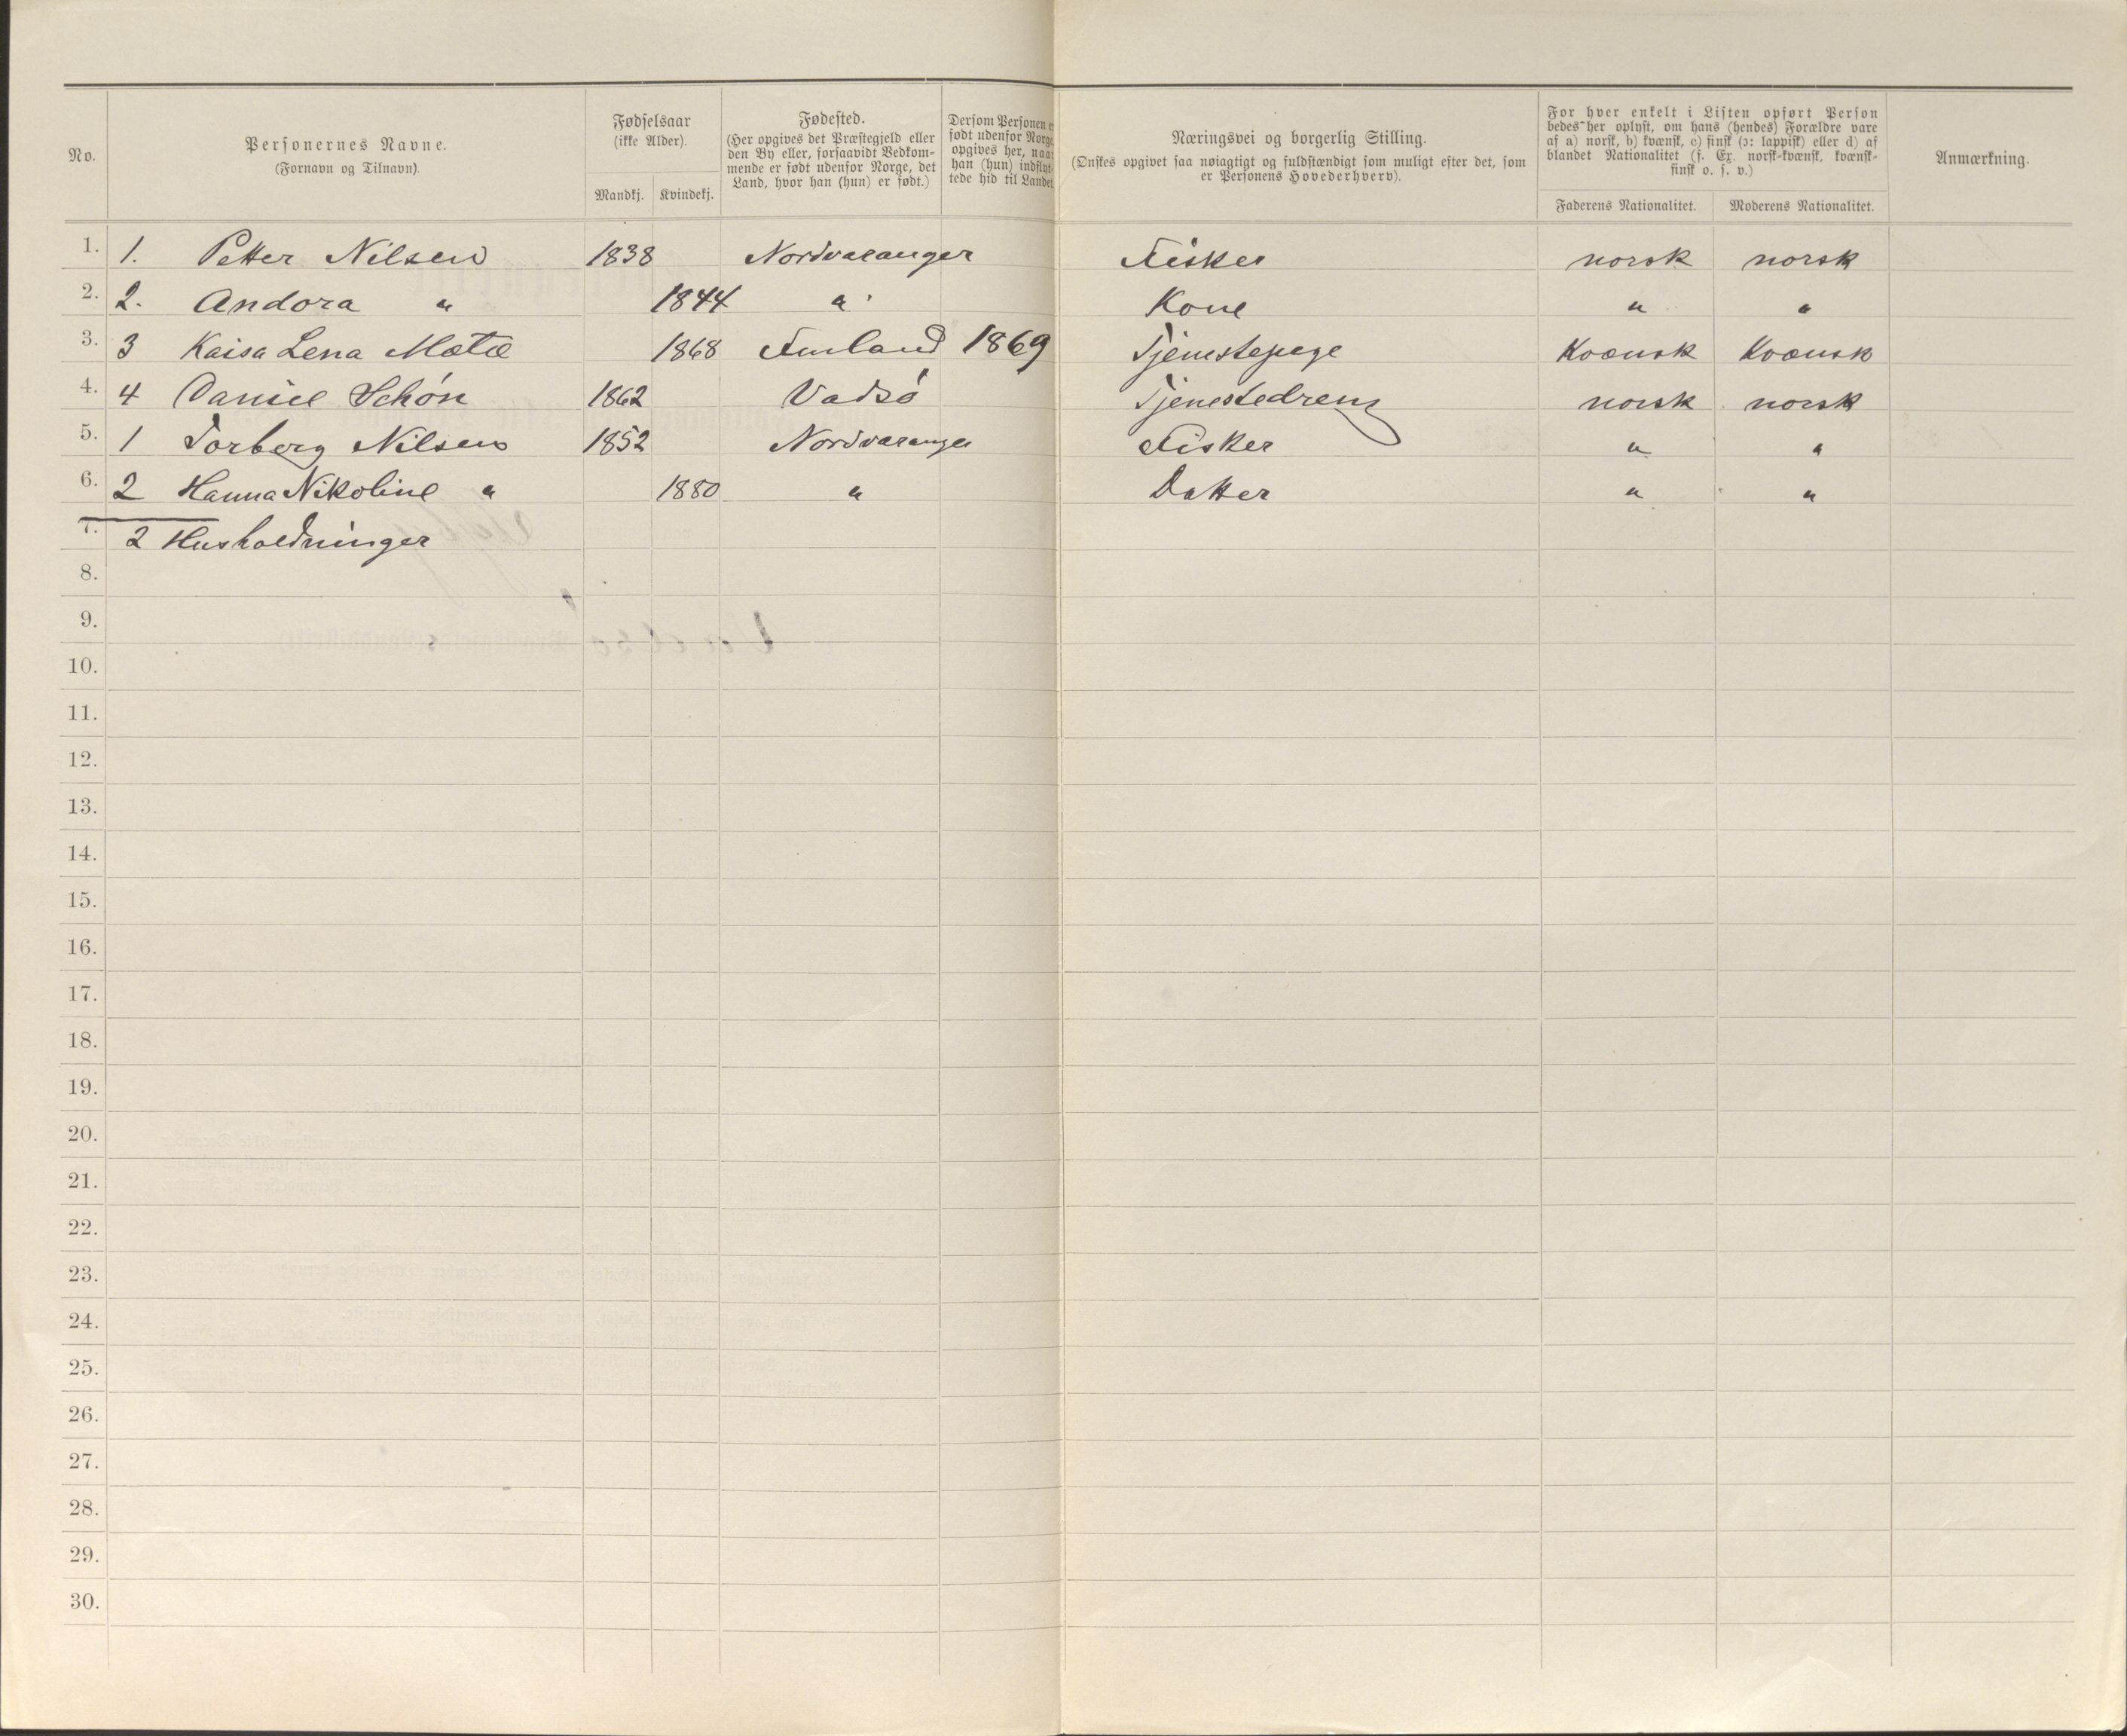 No.
Personernes Navne.
(Fornavn og Tilnavn).
Fødselsaar
(ikke Alder).
Mandkj. Kvindekj.
Fødested.
(Her opgives det Præstegjeld eller
den By eller, forsaavidt Vedkom-
mende er født udenfor Norge, det
Land, hvor han (hun) er født.)
Dersom Personen e
født udenfor Norge
opgives her, naa
han (hun) indflyt-
tede hid til Landet
Næringsvei og borgerlig Stilling.
(Ønskes opgivet saa nøiagtigt og fuldstændigt som muligt efter det, som
er Personens Hovederhverv).
For hver enkelt i Listen opført Person
bedes her oplyst, om hans (hendes) Forældre vare
af a) norsk, b) kvænsk, c) finsk (ɔ: lappisk) eller d) af
blandet Nationalitet (f. Ex. norsk-kvænsk, kvænsk-
finsk o. s. v.)
Faderens Nationalitet. Moderens Nationalitet.
Anmærkning.
1. 1. Petter Nilsen 1838 Nordvaranger Fisker norsk norsk
2. 2. Andora " 1844 " Kone " "
3. 3 Kaisa Lena 1868 Finland 1869 Tjenestepige Kvænsk Kvænsk
4. 4 Daniel Schøn 1862 Vadsø Tjenestedreng norsk norsk
5. 1 Torberg Nilsen 1852 Nordvaranger Fisker " "
6. 2 Hanna Nikoline " 1880 " Datter " "
7. 2 Husholdninger
8.
9.
10.
11.
12.
13.
14.
15.
16.
17.
18.
19.
20.
21.
22.
23.
24.
25.
26.
27.
28.
29.
30.